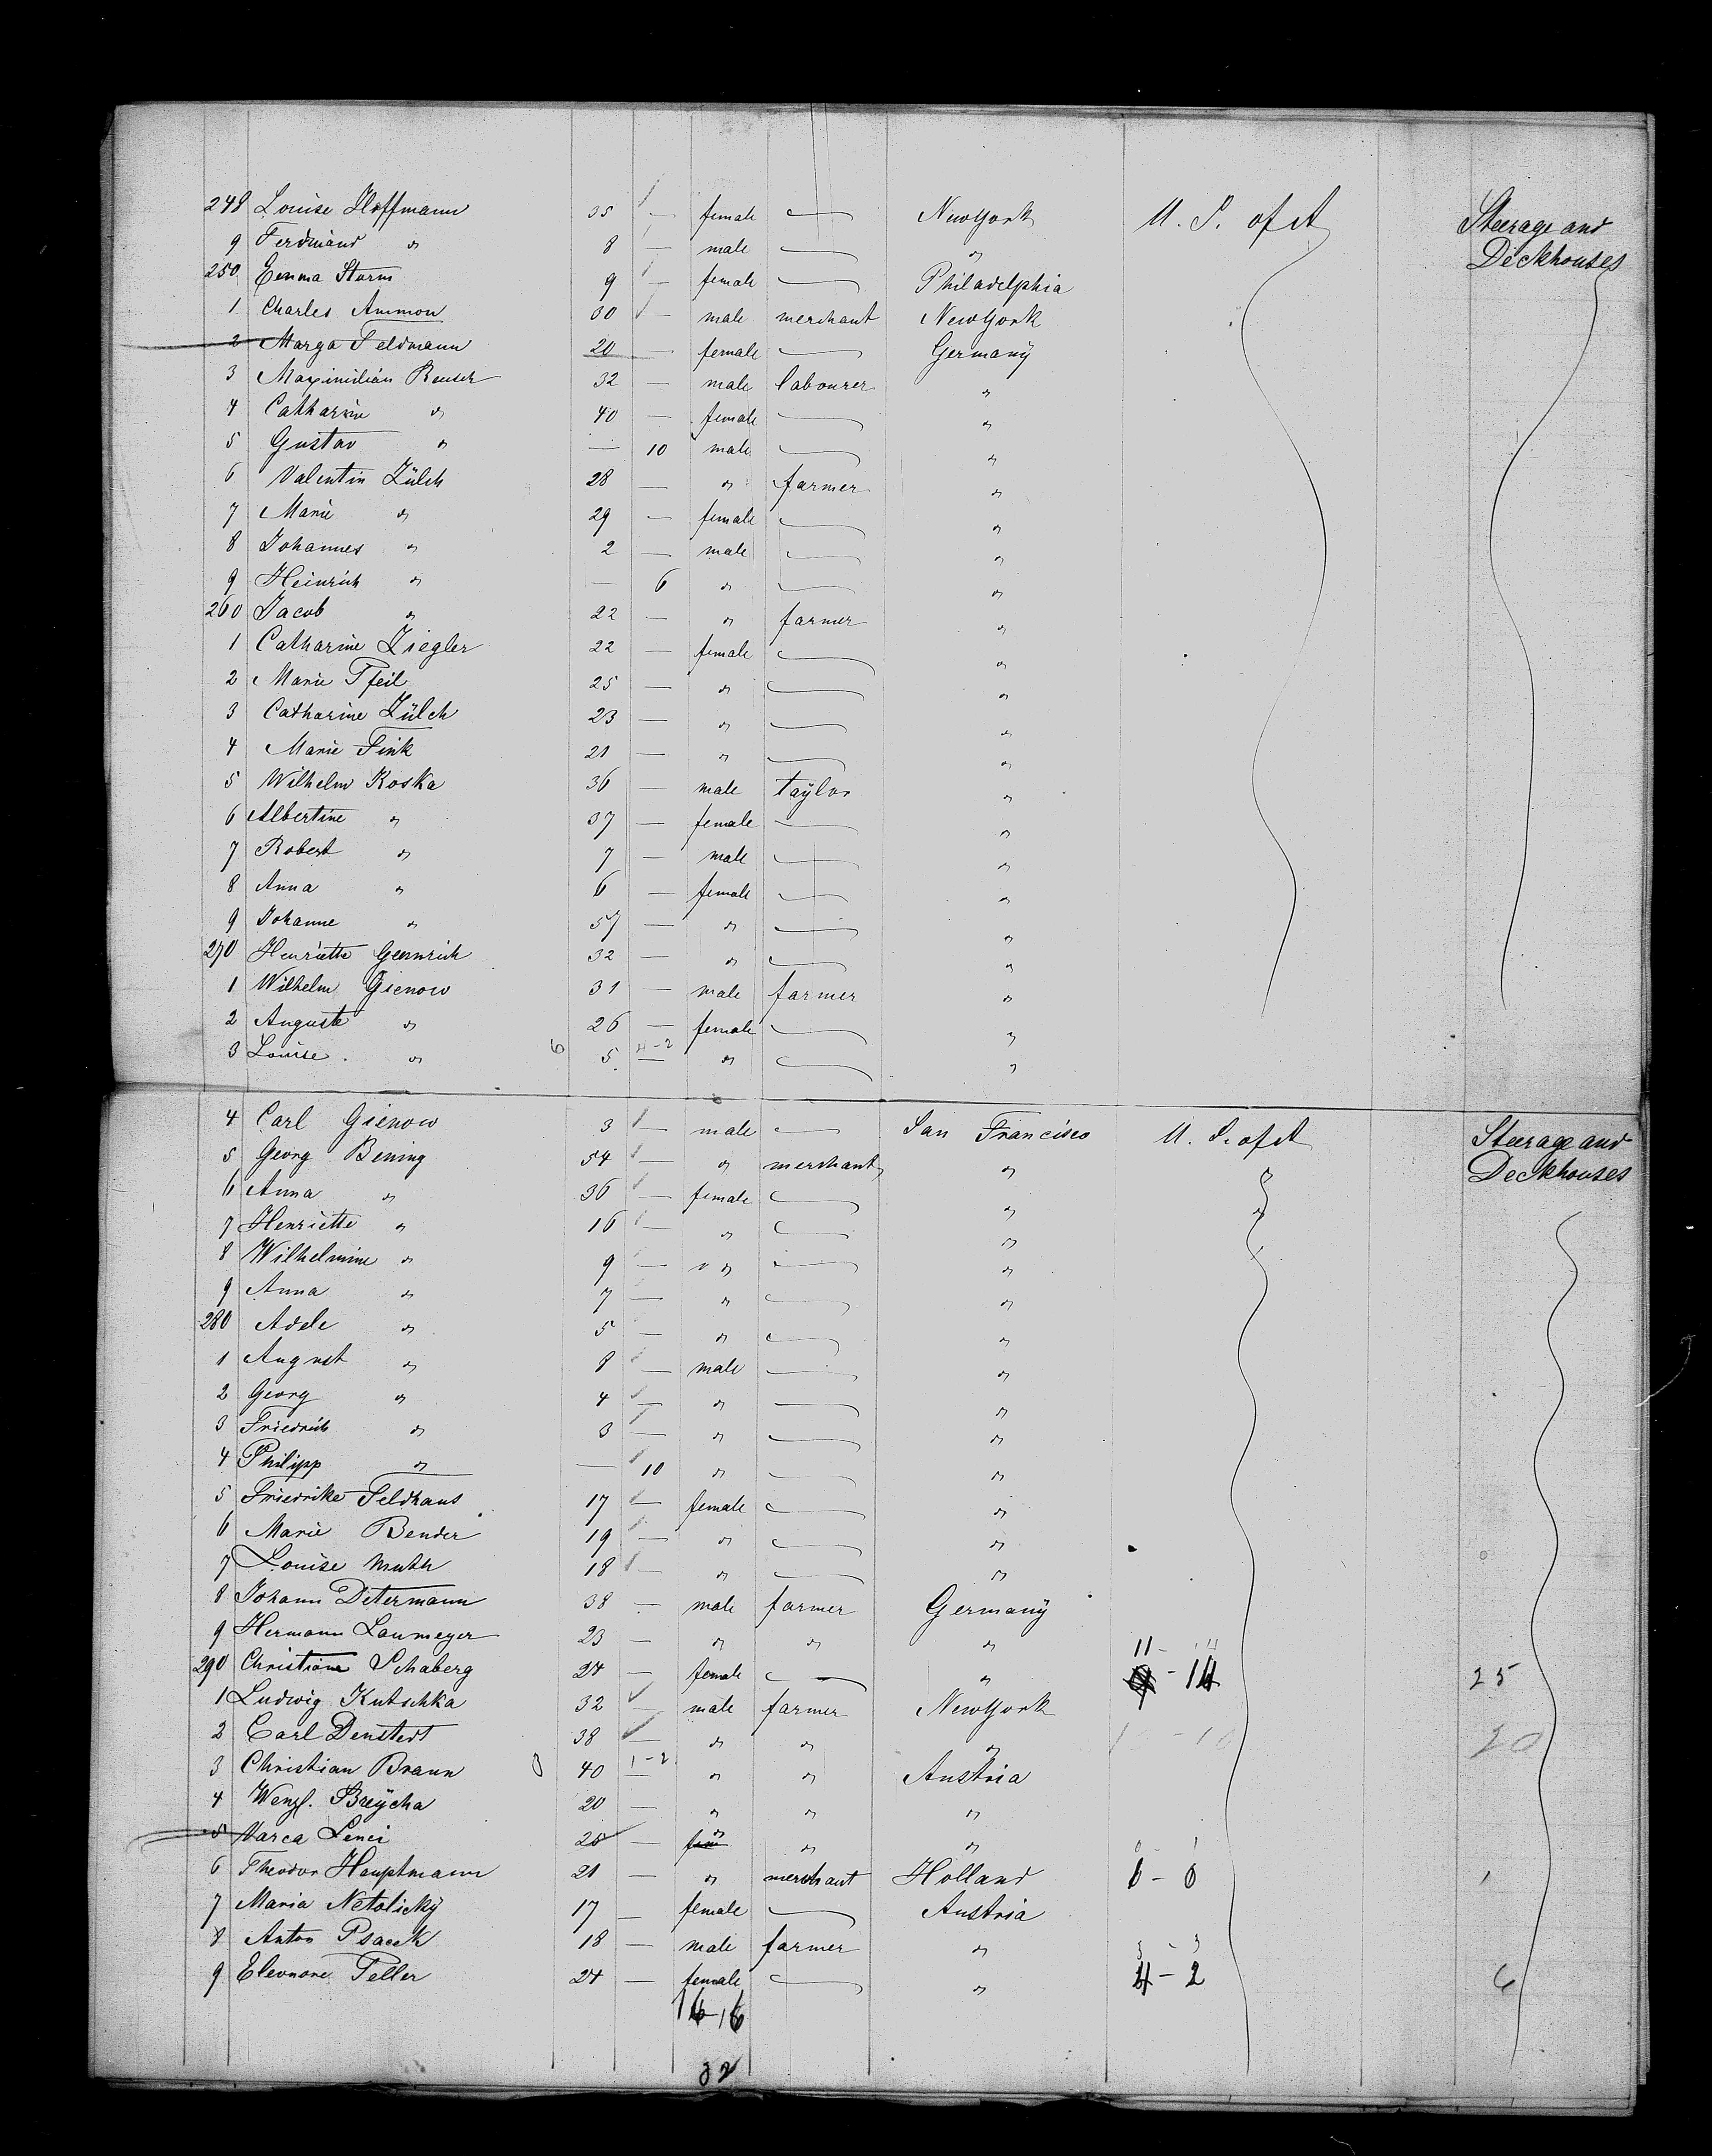 248 Louise Hoffmann 35 — female — NewYork U. S. of A Steerage and
9 Ferdinand " 8 — male — " Deckhouses
250 Emma Sturm 9 — female — Philadelphia
1 Charles Ammon 30 — male merchant NewYork
2 Marga Feldmann 20 — female — Germany
3 Maximilian Reusch 32 — male labourer "
4 Catharine " 40 — female — "
5 Gustav " — 10 male — "
6 Valentin Zülch 28 — " farmer "
7 Marie " 29 — female — "
8 Johannes " 2 — male — "
9 Heinrich " — 6 " — "
260 Jacob " 22 — " farmer "
1 Catharine Ziegler 22 — female — "
2 Marie Pfeil 25 — " — "
3 Catharine Zülch 23 — " — "
4 Marie Fink 21 — " — "
5 Wilhelm Koska 36 — male taylor "
6 Albertine " 37 — female — "
7 Robert " 7 — male — "
8 Anna " 6 — female — "
9 Johanne " 57 — " — "
270 Henriette 32 — " — "
1 Wilhelm Gienow 31 — male farmer "
2 Auguste " 26 — female — "
3 Louise " 6 5 4-2 — " — "
4 Carl Gienow 3 — male — San Francisco U. S. of A Steerage and
5 Georg Bening 54 — " merchant " Deckhouses
6 Anna " 36 — female — " "
7 Henriette " 16 — " — " "
8 Wilhelmine " 9 — " — "
9 Anna " 7 — " — "
280 Adele " 5 — " — "
1 August " 8 — male — "
2 Georg " 4 — " — "
3 Friedrich " 3 — " — "
4 Philipp " — 10 " — "
5 Friedrike Feldhaus 17 — female — "
6 Marie Bender 19 — " — "
7 Louise Muth 18 — " — "
8 Johann Determann 38 — male farmer Germany
9 Hermann Laumeyer 23 — " " " 11 - 14
290 Christiane Schaberg 24 — female — " 9 - 14 25
1 Ludwig Kutschka 32 — male farmer NewYork
2 Carl Denstedt 38 — " " " 20
3 Christian Braun 40 1-2 — " " Austria
4 Wenzl. Breycha 20 — " " "
5 Varca Lenci 25 — fem " " "
6 Theodor Hauptmann 21 — " merchant Holland 1 - 0
7 Maria Netolicky 17 — female — Austria
8 Anton Psacek 18 — male farmer " 3 - 3
9 Eleonore Peller 24 — female — " 4 - 2 6
16-16
32